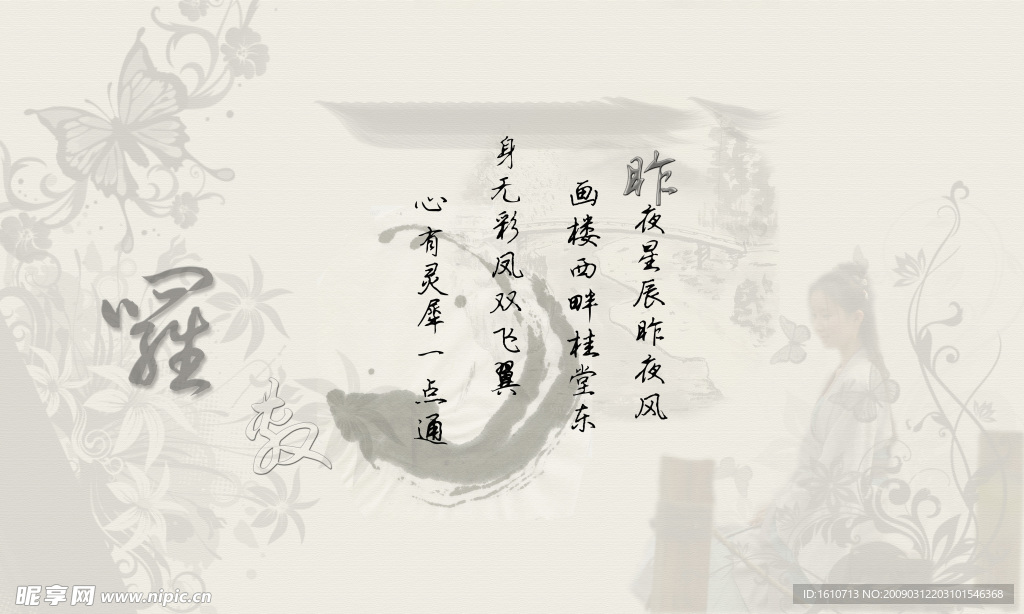 昨夜星辰昨夜风
画楼西畔桂堂东
身无彩凤双飞翼
心有灵犀一点通
囉
数
昵享网 www.nipic.cn
ID:1610713 NO:20090312203101546368